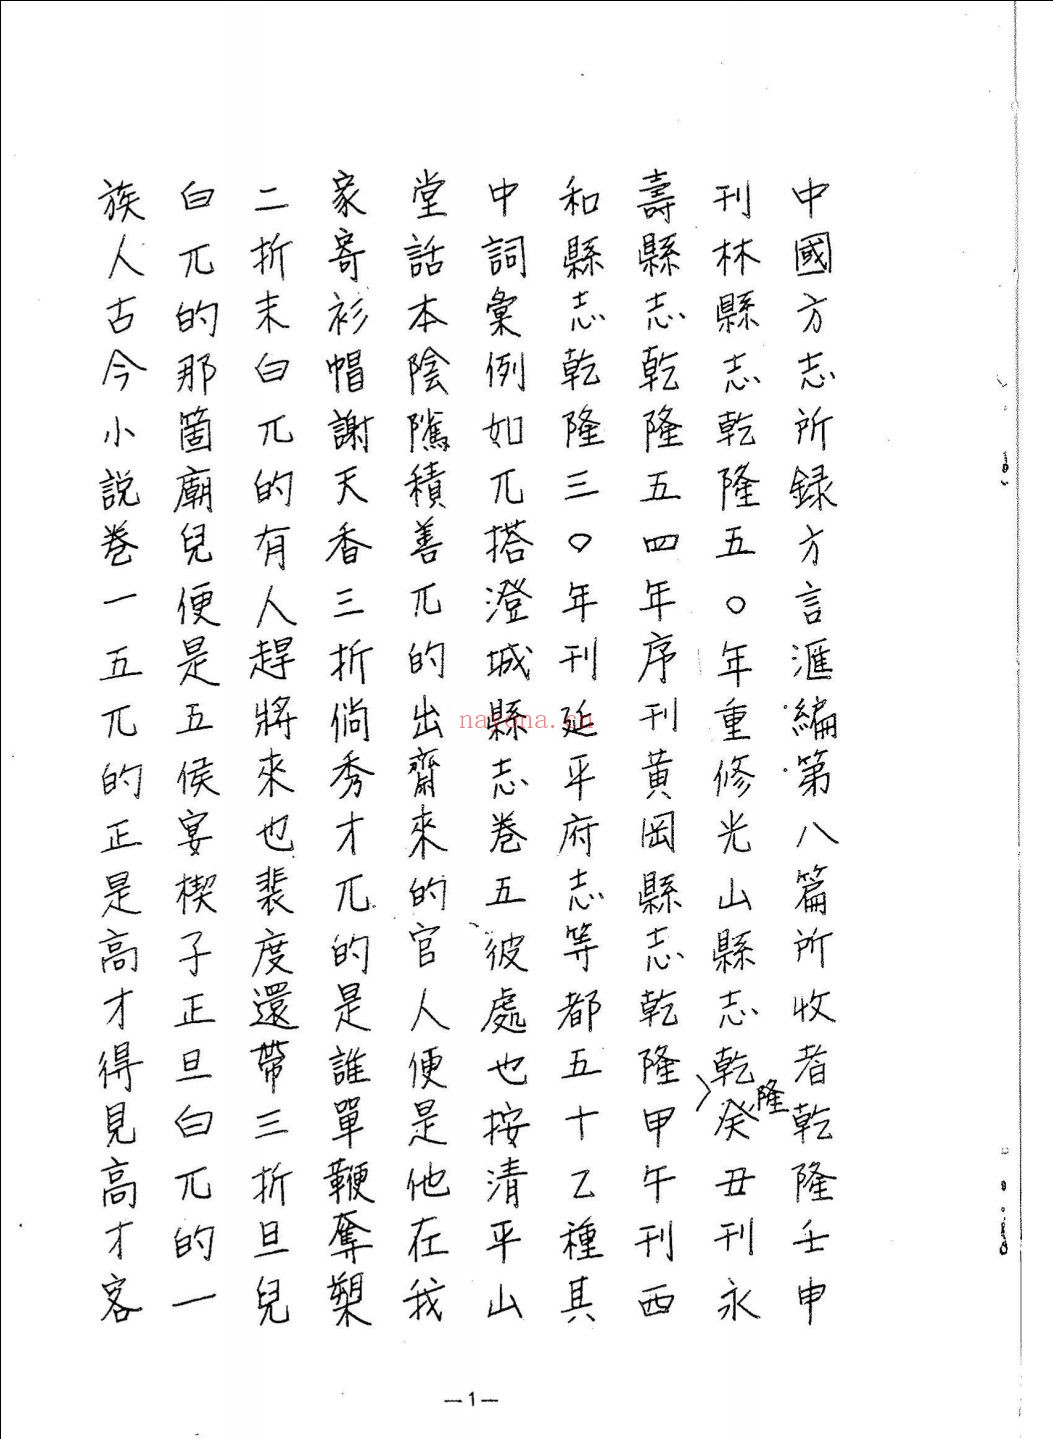 中國方志所録方言滙編第八篇所收者乾隆壬申
刊林縣志乾隆五〇年重修光山縣志乾隆癸丑刊永
壽縣志乾隆五四年序刊黃岡縣志乾隆甲午刊西
和縣志乾隆三〇年刊延平府志等都五十乙種其
中詞彙例如兀搭澄城縣志巻五彼處也按清平山
堂話本陰隲積善兀的出齋來的官人便是他在我
家寄衫帽謝天香三折倘秀才兀的是誰單鞭奪槊
二折末白兀的有人趕將來也裴度還帶三折旦兒
白兀的那箇廟兒便是五侯宴楔子正旦白兀的一
族人古今小説巻一五兀的正是高才得見高才客
nayona.cn
—1—